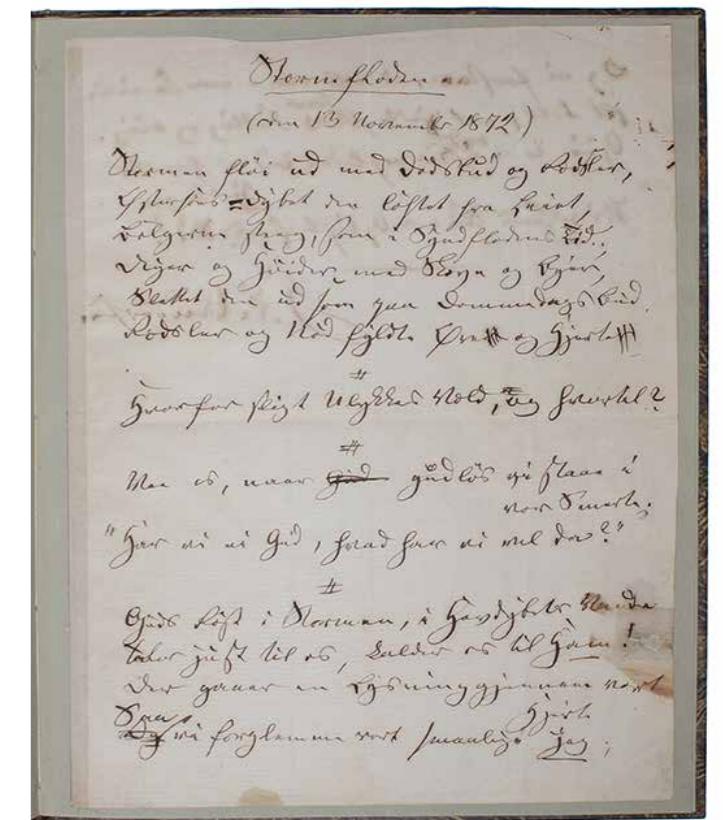 Stormfloden
(den 13 November 1872)
Stormen fløi ud med Dødsbud og Rædsler,
Østersøens=Dybet den løftet fra Leiet,
Bølgerne steeg, som i Syndflodens Tid.
Diger og Høider, med Skove og Byer,
Slettet den ud som paa Dommedags Bud.
Rædsler og Nød fyldte Øre og Hjerte
Hvorfor sligt Ulykkes Væld, og hvortil?
Vee os, naar Gud gudløs vi staae i
vor Smerte.
"Har vi ei Gud, hvad har vi vel da?"
Guds Røst i Stormen, i Havdybets Vande
Taler just til os, kalder os til Ham!
Der gaaer en Lysning gjennem vort
Hjerte
Saa vi forglemme vort smaalige jeg;